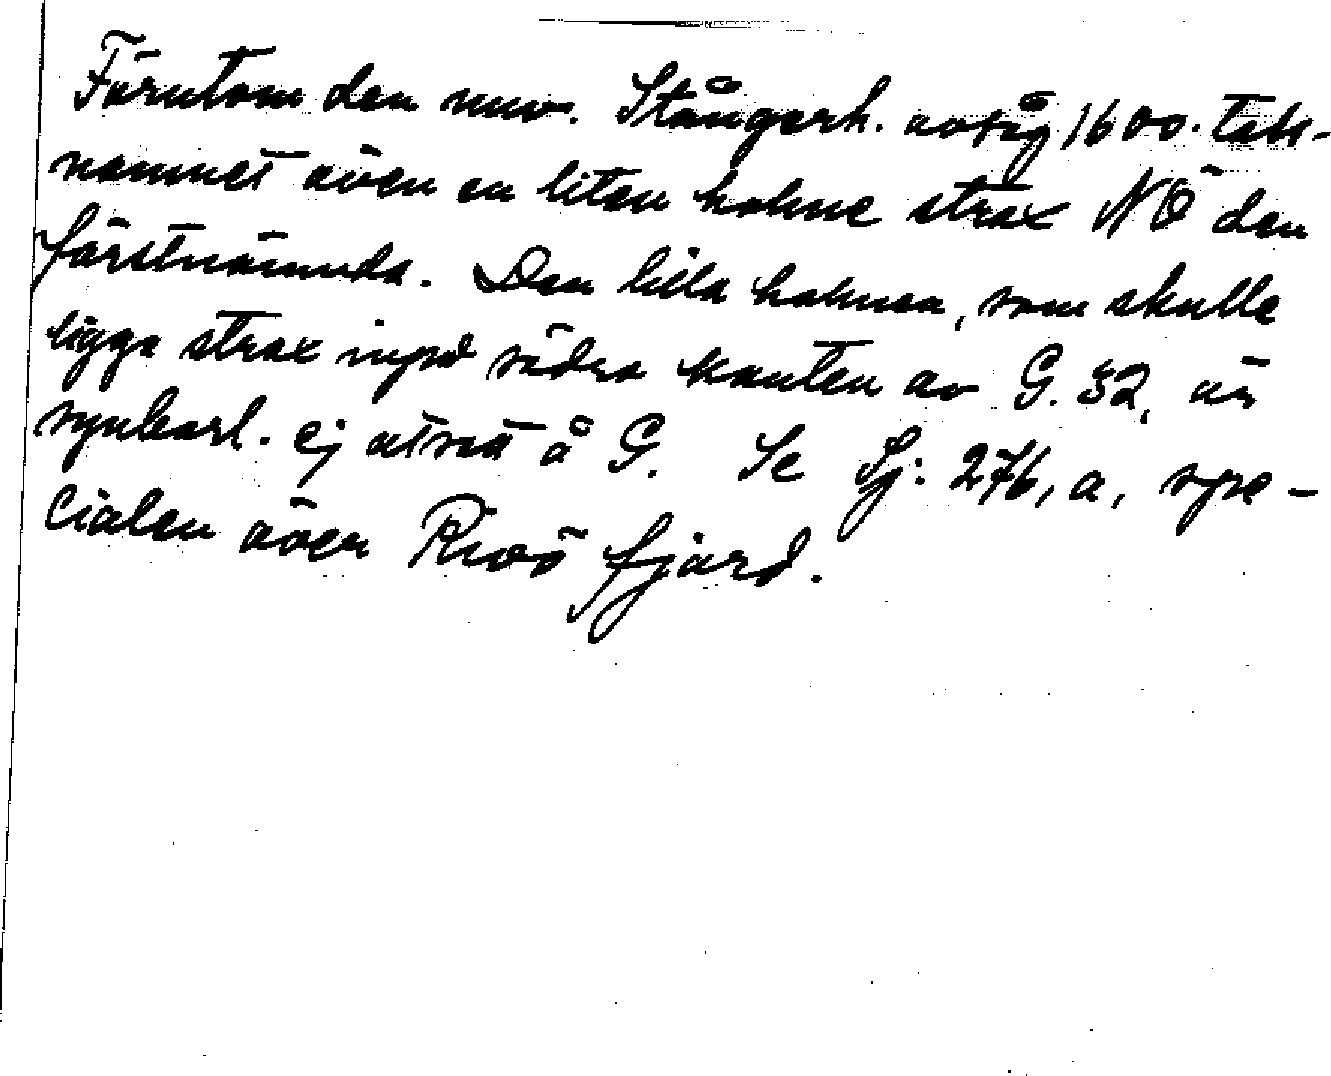 Förutom den nuv. Stångerh. avsåg 1600-tals-
namnet även en liten holme strax NÖ den
förstnämnda. Den lilla holmen, som skulle
ligga strax inpå södra kanten av G. 32, är
synbarl. ej utsatt å G. Se Sj: 276, a, spe-
cialen över Rivö fjord.